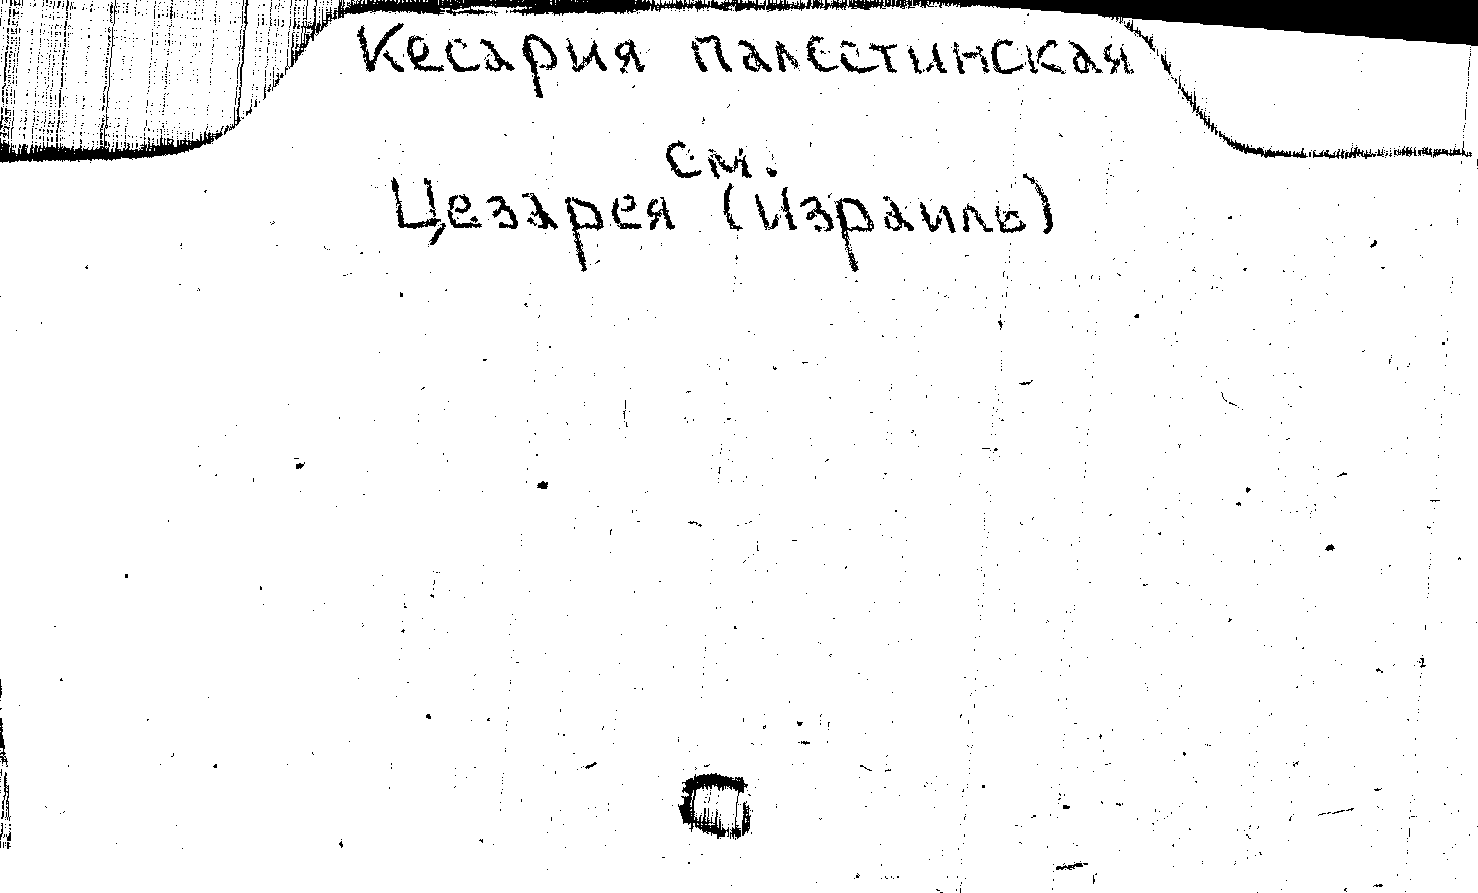 Кесария палестинская
см.
Цезарея (Израиль)